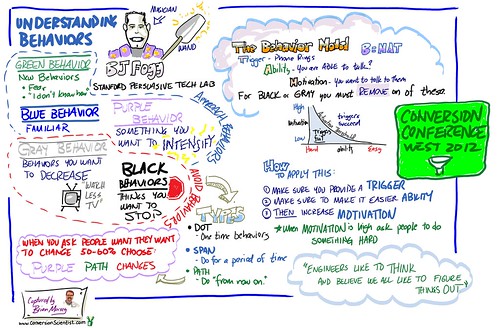 UNDERSTANDING
BEHAVIORS
MUSICIAN
NANO
BJ FOGG
STANFORD PERSUASIVE TECH LAB
GREEN BEHAVIOR
New Behaviors
• Fear
• "I don't know how"
BLUE BEHAVIOR
FAMILIAR
PURPLE
BEHAVIOR
SOMETHING YOU
WANT TO INTENSIFY
APPROACH BEHAVIORS
GRAY BEHAVIOR
BEHAVIORS YOU WANT
TO DECREASE
"WATCH
LESS
TV"
BLACK
BEHAVIORS
THINGS YOU
WANT TO
STOP
AVOID BEHAVIORS
WHEN YOU ASK PEOPLE WANT THEY WANT
TO CHANGE 50-60% CHOOSE
PURPLE PATH CHANGES
TYPES
• DOT
- One time behaviors
• SPAN
- Do for a period of time
• PATH
- Do "from now on."
The Behavior Model B=MAT
Trigger - Phone Rings
Ability - You are ABLE to talk?
Motivation - You want to talk to them
For BLACK or GRAY you must REMOVE on of these
High
Motivation
Low
triggers
succeed
Triggers
fail
Hard
ability
Easy
HOW
TO APPLY THIS:
① MAKE SURE YOU PROVIDE A TRIGGER
② MAKE SURE TO MAKE IT EASIER ABILITY
③ THEN INCREASE MOTIVATION
* When MOTIVATION is high ask people to do
SOMETHING HARD
"ENGINEERS LIKE TO THINK
AND BELIEVE WE ALL LIKE TO FIGURE
THINGS OUT."
CONVERSION
CONFERENCE
WEST 2012
Captured by
Brian Massey
www.ConversionScientist.com